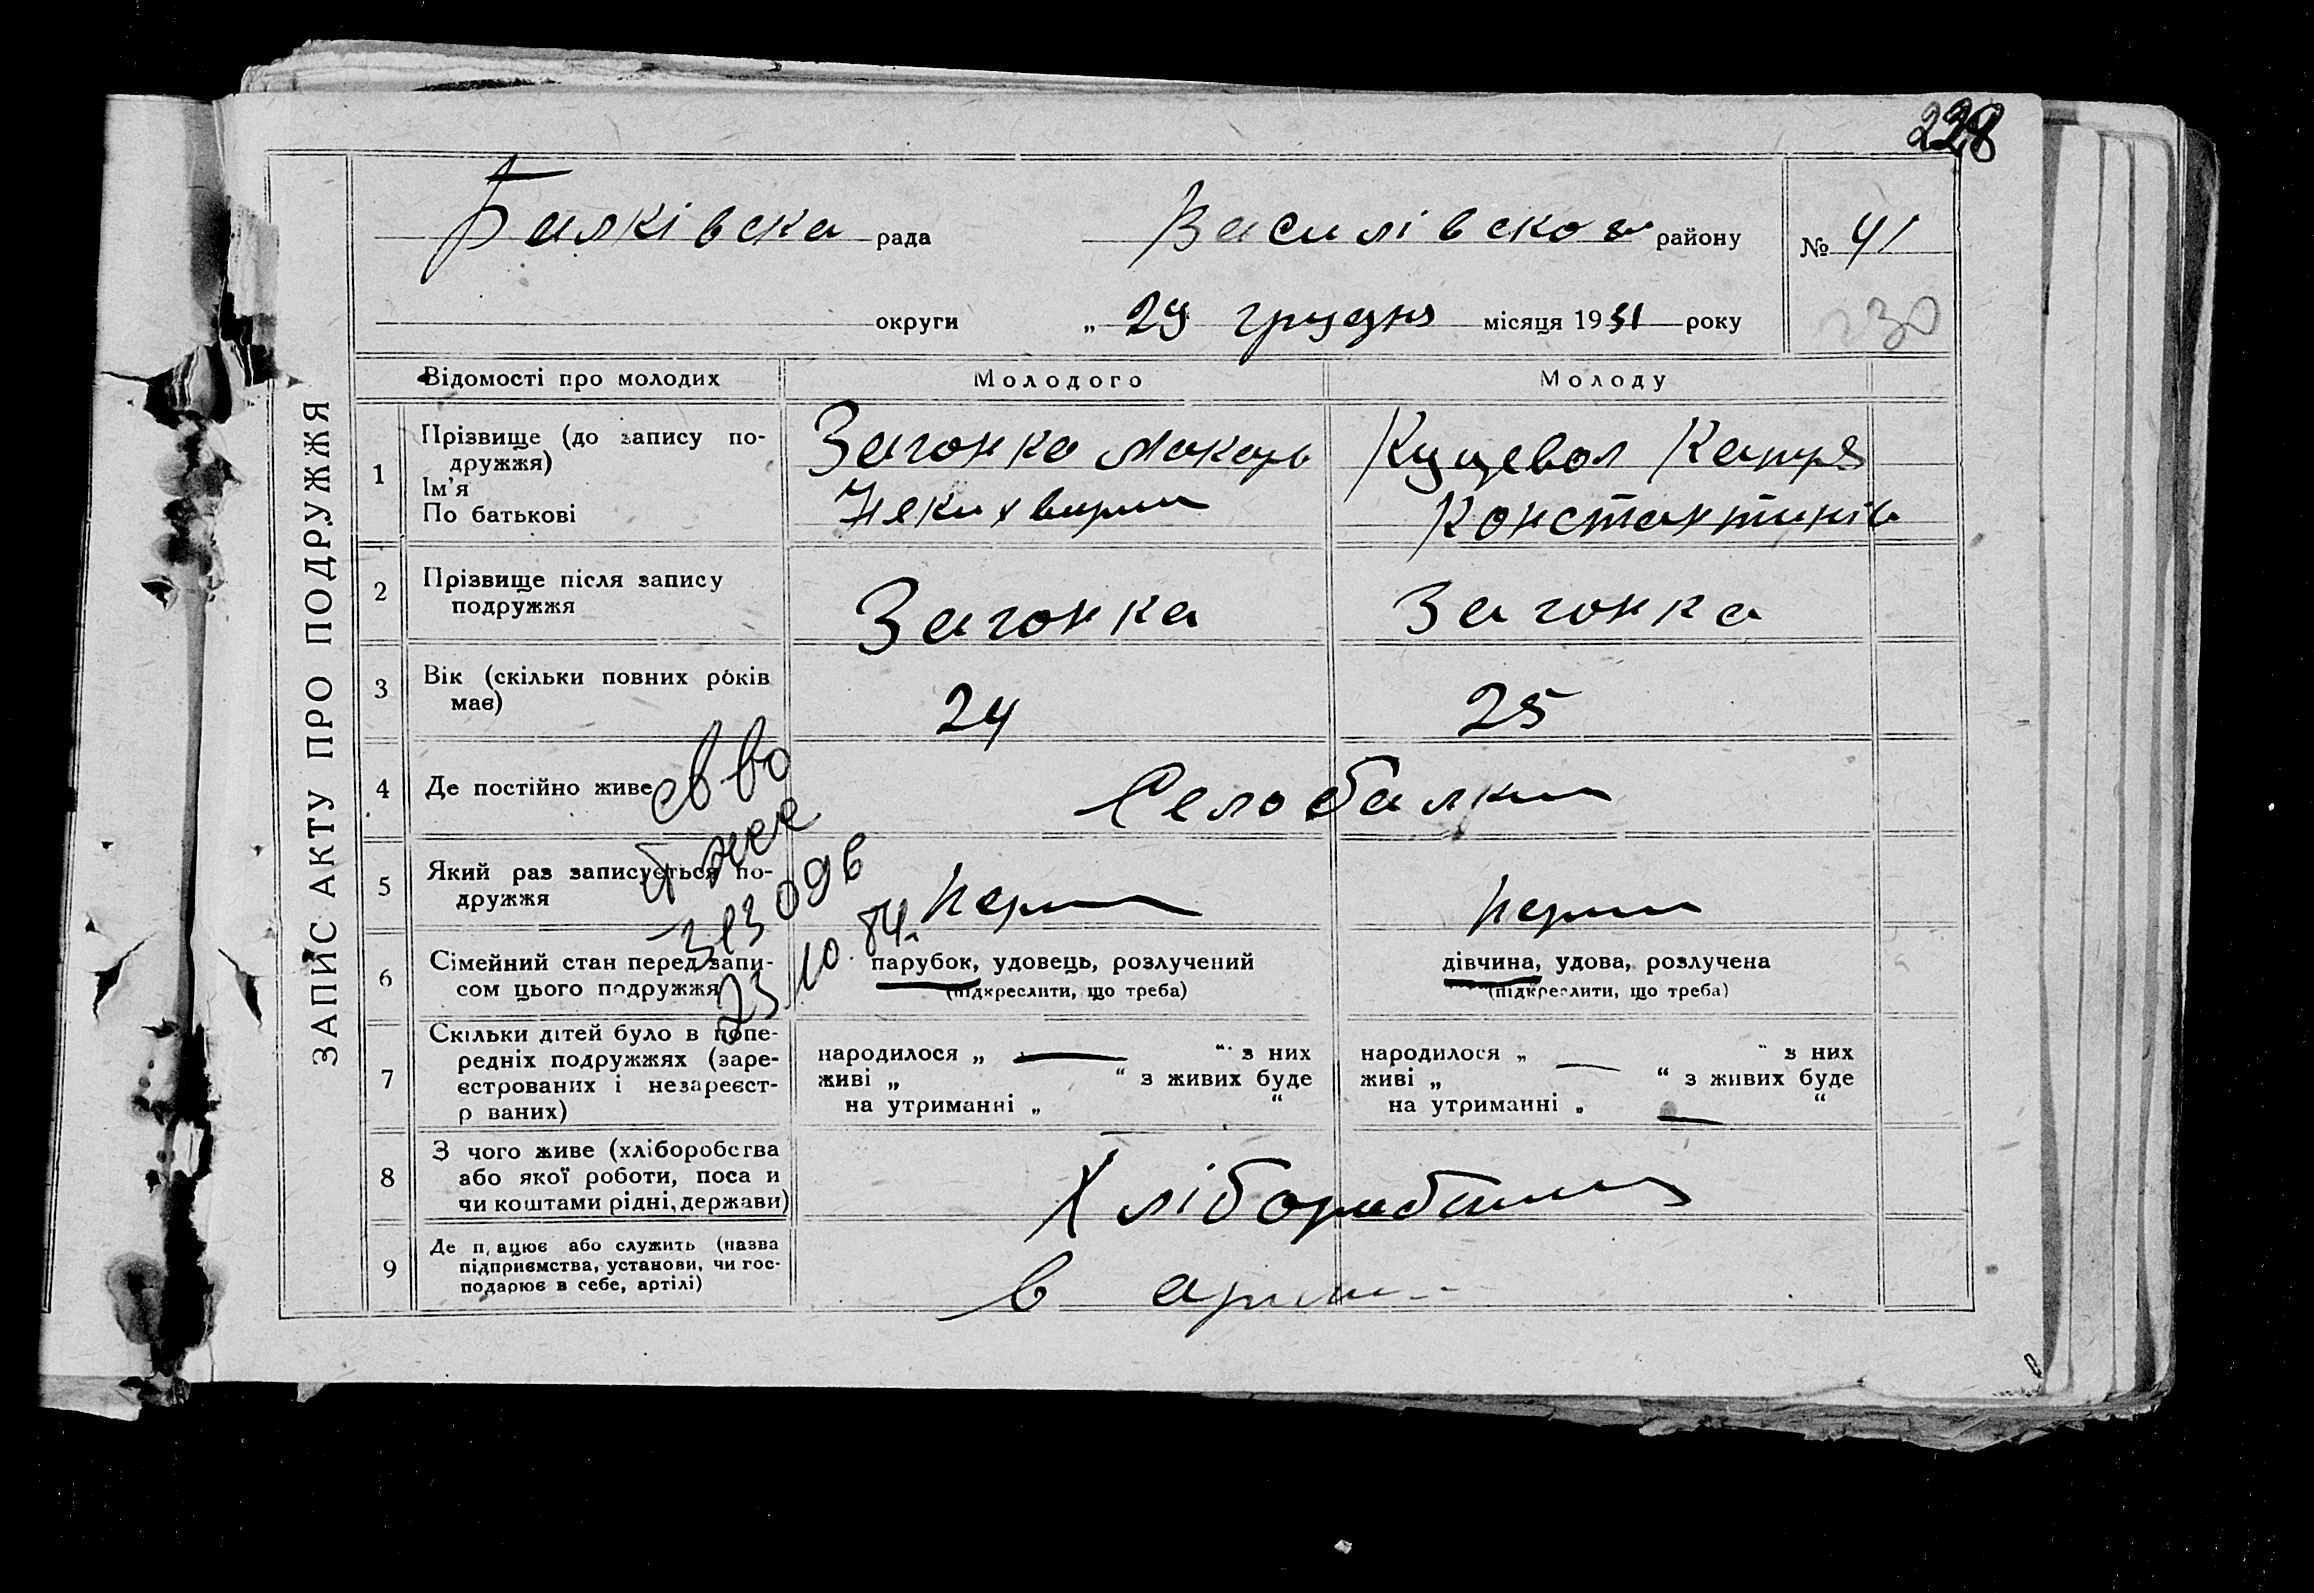 228
ЗАПИС АКТУ ПРО ПОДРУЖЖЯ
Балківска рада Василівского району № 41
округи „ 29 грудня місяця 1931 року
230
Відомості про молодих Молодого Молоду
1 Прізвище (до запису по-
дружжя)
Ім'я
По батькові
Загонка Макарь
Кущевол Катря
Константинів
2 Прізвище після запису
подружжя
Загонка Загонка
3 Вік (скільки повних років
має)
24 25
4 Де постійно живе
Село Балки
5 Який раз записується по-
дружжя
перши перши
6 Сімейний стан перед запи-
сом цього подружжя
парубок, удовець, розлучений
(підкреслити, що треба)
дівчина, удова, розлучена
(підкреслити, що треба)
св во
213096
23.10.84.
7 Скільки дітей було в попе-
редніх подружжях (заре-
єстрованих і незареєст-
р ваних)
народилося „ “ з них
живі „ “ з живих буде
на утриманні „ “
народилося „ “ з них
живі „ “ з живих буде
на утриманні „ “
8 З чого живе (хліборобства
або якої роботи, поса и
чи коштами рідні, держави)
9 Де п ацює або служить (назва
підприємства, установи, чи гос-
подарює в себе, артілі)
в артили